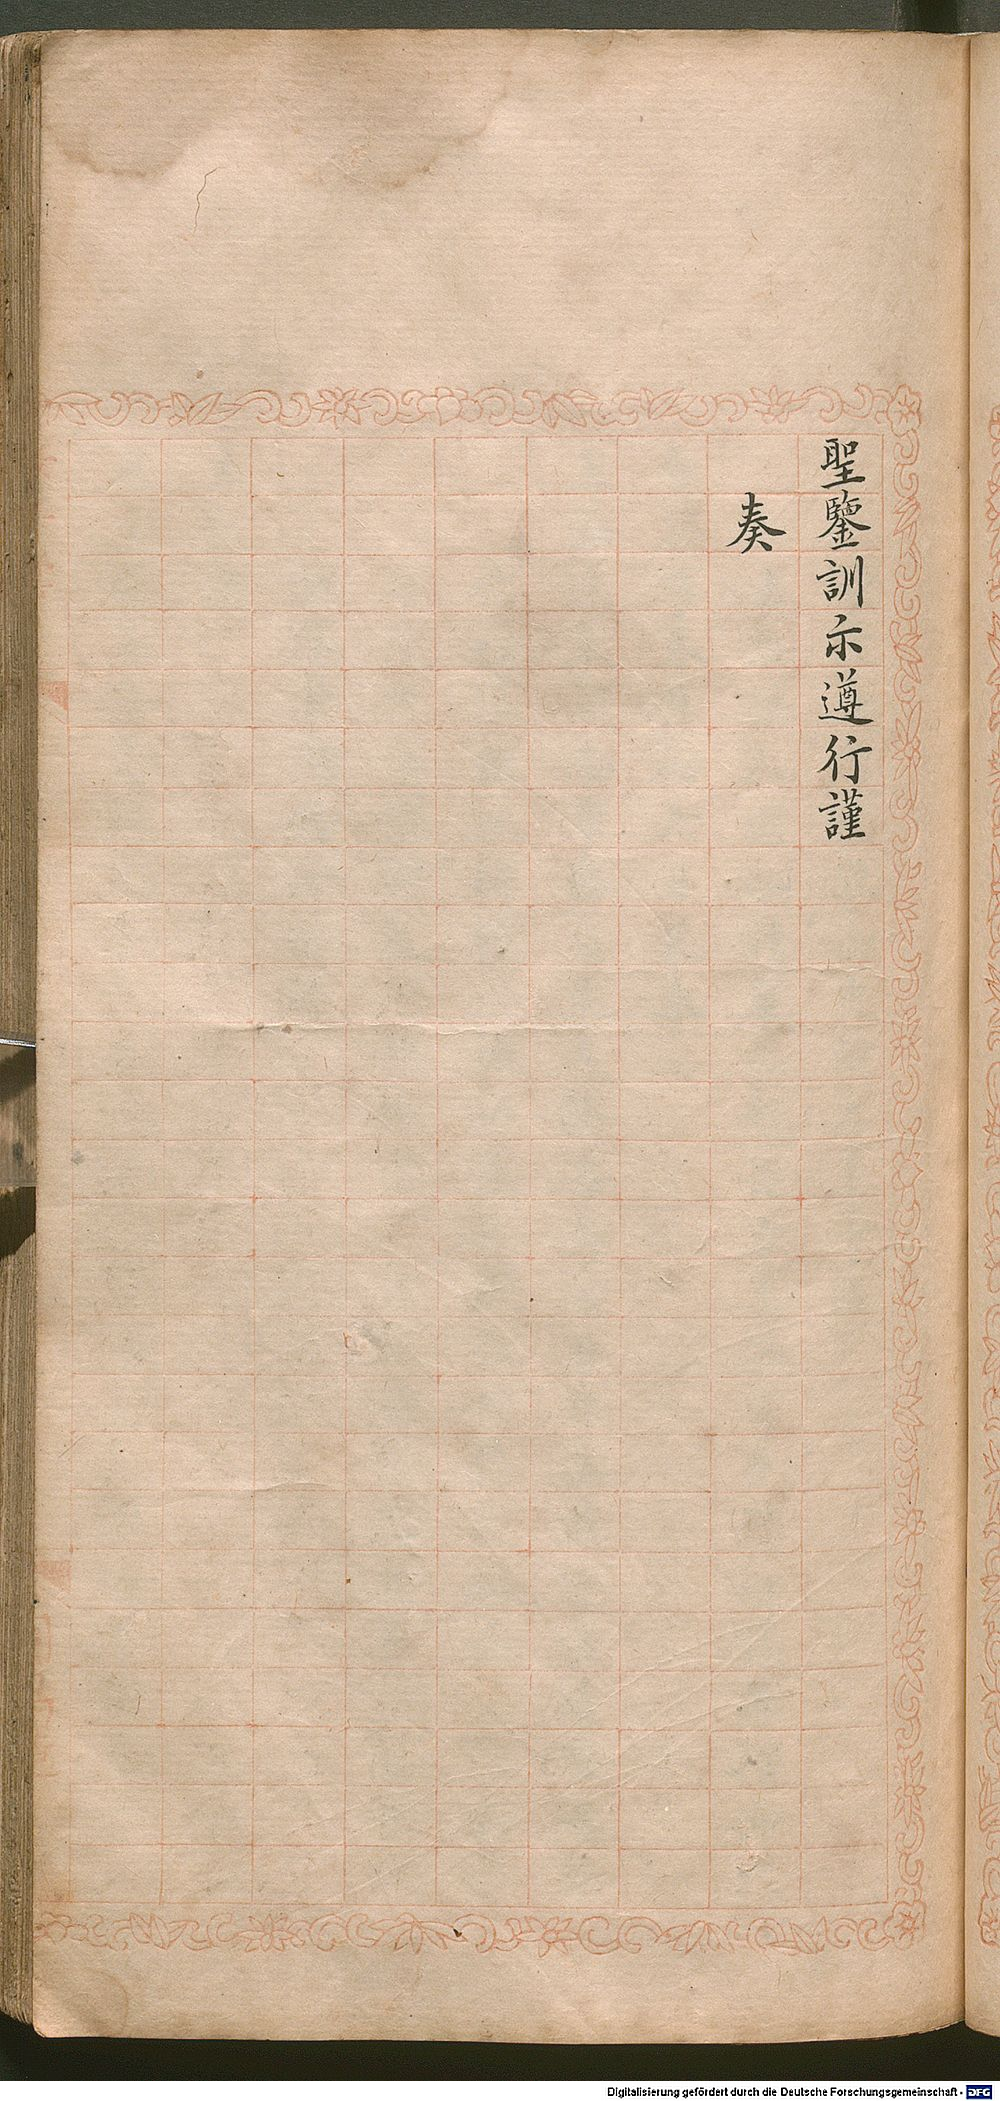 聖鑒訓示遵行謹
奏
Digitalisierung gefördert durch die Deutsche Forschungsgemeinschaft - DFG